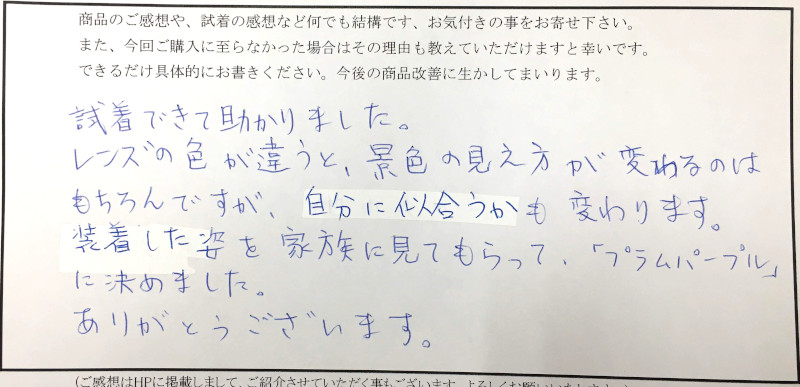 商品のご感想や、試着の感想など何でも結構です、お気付きの事をお寄せ下さい。
また、今回ご購入に至らなかった場合はその理由も教えていただけますと幸いです。
できるだけ具体的にお書きください。今後の商品改善に生かしてまいります。
試着できて助かりました。
レンズの色が違うと、景色の見え方が変わるのは
もちろんですが、自分に似合うかも変わります。
装着した姿を家族に見てもらって、「プラムパープル」
に決めました。
ありがとうございます。
(ご感想はHPに掲載しまして、ご紹介させていただく事もございます。よろしくお願いいたします